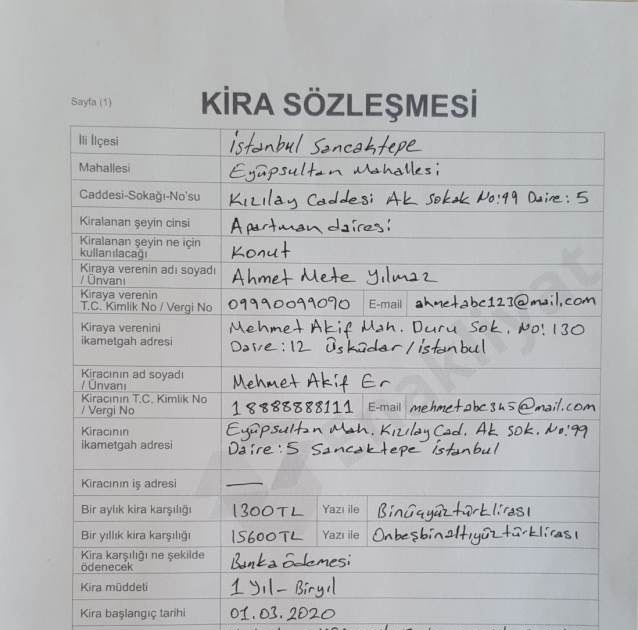 Sayfa (1)
KİRA SÖZLEŞMESİ
İli İlçesi İstanbul Sancaktepe
Mahallesi Eyüpsultan Mahallesi
Caddesi-Sokağı-No'su Kızılay Caddesi Ak Sokak No:99 Daire: 5
Kiralanan şeyin cinsi Apartman dairesi
Kiralanan şeyin ne için
kullanılacağı Konut
Kiraya verenin adı soyadı
/ Ünvanı Ahmet Mete Yılmaz
Kiraya verenin
T.C. Kimlik No / Vergi No 09990099090 E-mail ahmetabc123@mail.com
Kiraya verenini
ikametgah adresi
Mehmet Akif Mah. Duru Sok. No: 130
Daire: 12 Üsküdar/İstanbul
Kiracının ad soyadı
/ Ünvanı Mehmet Akif Er
Kiracının T.C. Kimlik No
/ Vergi No 18888888111 E-mail mehmetabc345@mail.com
Kiracının
ikametgah adresi
Eyüpsultan Mah. Kızılay Cad. Ak Sok. No:99
Daire: 5 Sancaktepe İstanbul
Kiracının iş adresi —
Bir aylık kira karşılığı 1300TL Yazı ile Binüçyüztürklirası
Bir yıllık kira karşılığı 15600TL Yazı ile Onbeşbinaltıyüztürklirası
Kira karşılığı ne şekilde
ödenecek Banka ödemesi
Kira müddeti 1 Yıl - Biryıl
Kira başlangıç tarihi 01.03.2020